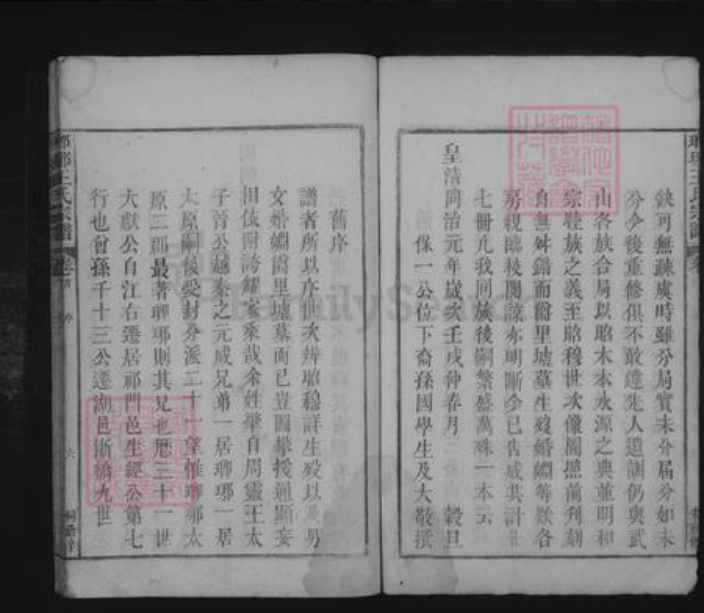 缺可無疎虞時雖分局實未分屆分如未
分今後重修俱不敢違先人遺訓仍與武
山各族合局以昭木本水源之典重明和
宗睦族之義至昭穆世次像圖照前刋刻
自無舛錯而啚里墟墓生歿婚姻等欵各
房親臨校閱諒亦明晰今已告成共計
七冊凡我同族後嗣繁盛萬殊一本云
皇清同治元年歲次壬戌仲春月 穀旦
保一公位下裔孫國學生及大敬撰
舊序
譜者所以序世次辨昭穆詳生歿以及男
女婚姻啚里墟墓而已豈圖攀援通顯妄
相依附誇耀家乘哉余姓肇自周靈王太
子晉公越秦之元威兄弟一居瑯琊一居
太原嗣後受封分派二十一望惟瑯琊太
原二郡最著瑯琊則其兄也歷三十一世
大獻公自江右遷居祁門邑生經公第七
行也曾孫千十三公遷湖邑浙橋九世
瑯琊王氏宗譜
卷首
序
六